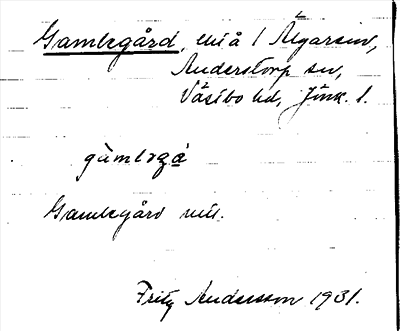 Gamlegård, enh å 1 Älgarsmo,
Anderstorp sn,
Västbo hd, Jönk. l.
gàmləgá
Gamlegård
Fritz Andersson 1931.